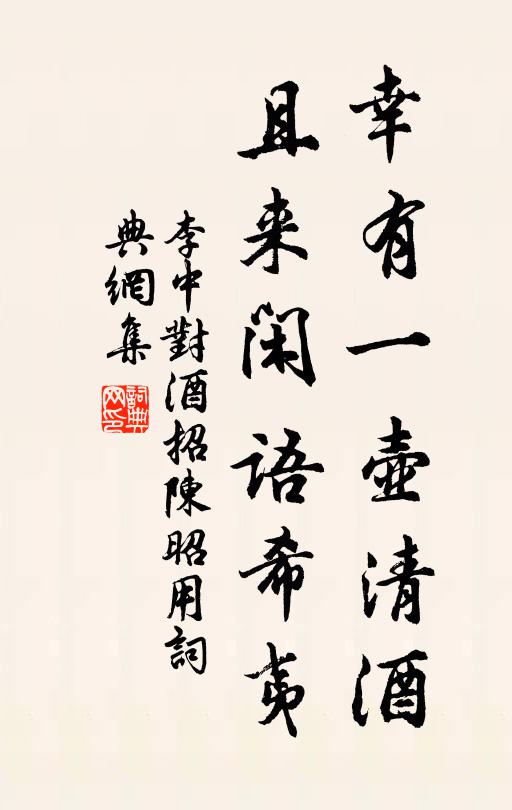 幸有一壺清酒
且来閑語希夷
李中對酒招陳昭用詞
典網集
詞典
网印